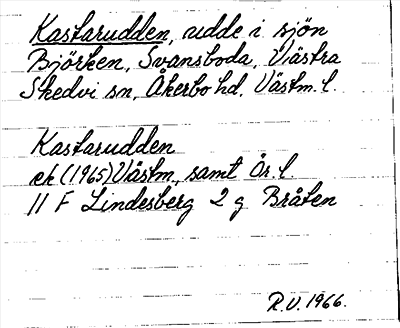 Kastarudden, udde i sjön
Björken, Svansboda, Västra
Skedvi sn, Åkerbo hd, Västm. l.
Kastarudden
ek (1965) Västm. samt Ör. l.
11 F Lindesberg 2 g Bråten
R.V. 1966.